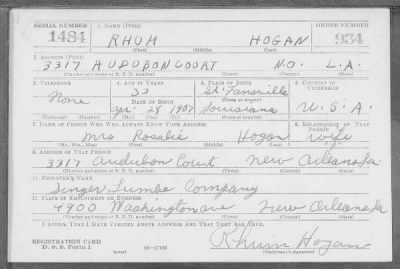 SERIAL NUMBER 1. NAME (Print) ORDER NUMBER
1484 RHUM HOGAN 934
(First) (Middle) (Last)
2. ADDRESS (Print)
3317 AUDOBON COURT N.O. L.A.
(Number and street or R. F. D. number) (Town) (County) (State)
3. TELEPHONE 4. AGE IN YEARS 5. PLACE OF BIRTH 6. COUNTRY OF CITIZENSHIP
None 33 St.
DATE OF BIRTH (Town or county)
Apr. 28 1907 Louisiana U.S.A.
(Exchange) (Number) (Mo.) (Day) (Yr.) (State or country)
7. NAME OF PERSON WHO WILL ALWAYS KNOW YOUR ADDRESS 8. RELATIONSHIP OF THAT PERSON
Mrs Rosalie Hogan Wife
(Mr., Mrs., Miss) (First) (Middle) (Last)
9. ADDRESS OF THAT PERSON
3317 Audubon Court New Orleans La
(Number and street or R. F. D. number) (Town) (County) (State)
10. EMPLOYER'S NAME
Singer Lumbe Company
11. PLACE OF EMPLOYMENT OR BUSINESS
4900 Washington ave New Orleans La
(Number and street or R. F. D. number) (Town) (County) (State)
I AFFIRM THAT I HAVE VERIFIED ABOVE ANSWERS AND THAT THEY ARE TRUE.
REGISTRATION CARD
D. S. S. Form 1
Rhum Hogan
(Registrant's signature)